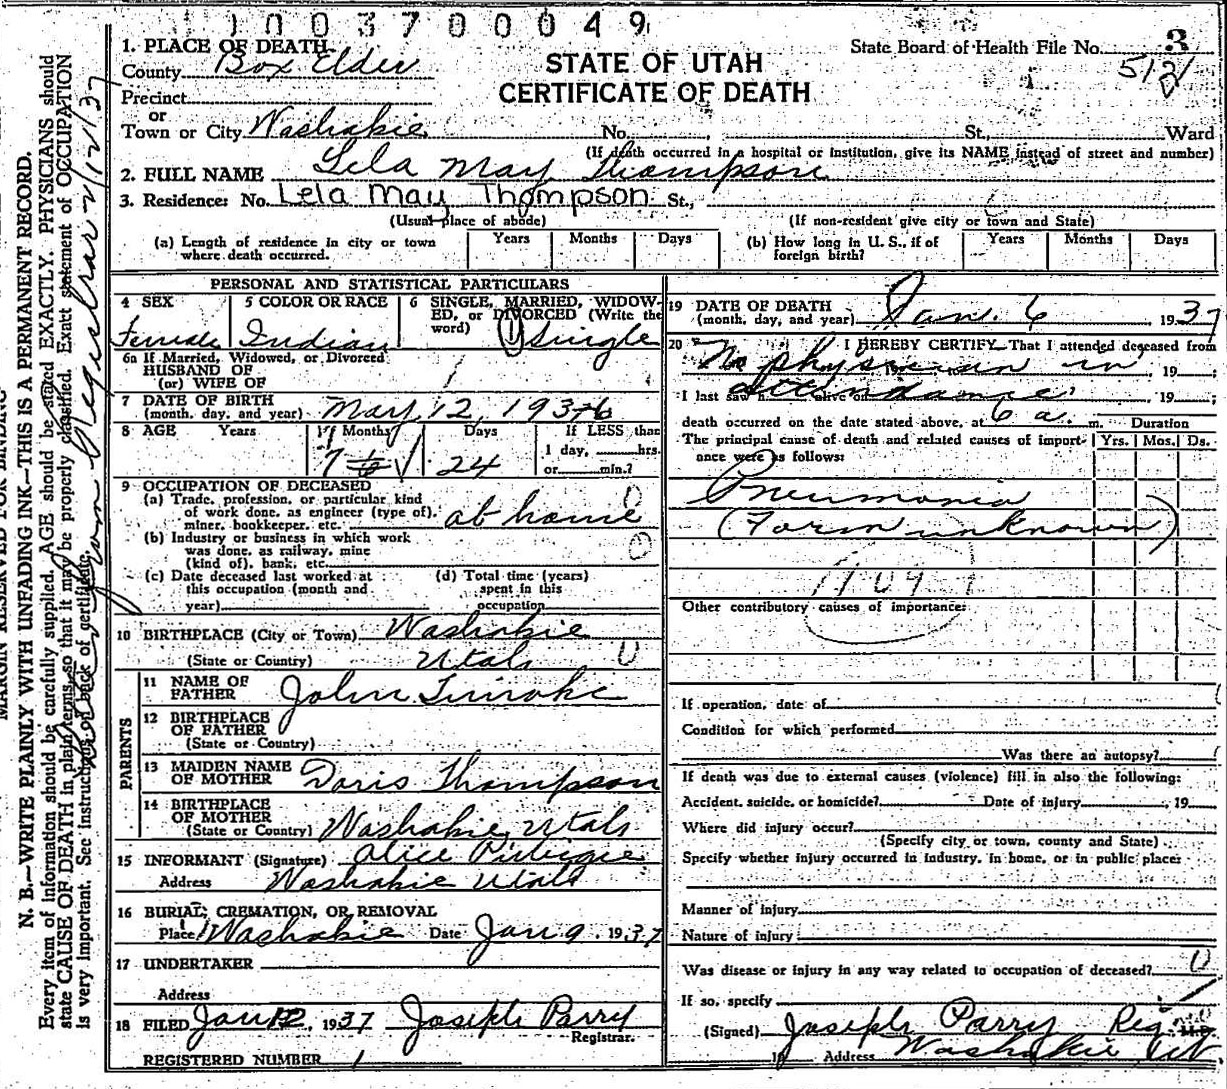 1003700049
1. PLACE OF DEATH
County Box Elder
STATE OF UTAH
CERTIFICATE OF DEATH
State Board of Health File No. 3
512
Precinct
or
Town or City Washakie No. , St., Ward
(If death occurred in a hospital or institution, give its NAME instead of street and number)
2. FULL NAME Lela May Thompson
3. Residence: No. Lela May Thompson St.,
(Usual place of abode) (If non-resident give city or town and State)
(a) Length of residence in city or town where death occurred. Years Months Days
(b) How long in U. S., if of foreign birth? Years Months Days
PERSONAL AND STATISTICAL PARTICULARS
4 SEX Female
5 COLOR OR RACE Indian
6 SINGLE, MARRIED, WIDOWED, OR DIVORCED (Write the word) Single
6a If Married, Widowed, or Divorced
HUSBAND OF
(or) WIFE OF
7 DATE OF BIRTH
(month, day, and year) May 12, 1936
8 AGE Years Months Days If LESS than
7 24 1 day, hrs.
or min.?
9 OCCUPATION OF DECEASED
(a) Trade, profession, or particular kind
of work done, as engineer (type of),
miner, bookkeeper, etc. at home
(b) Industry or business in which work
was done, as railway, mine
(kind of), bank, etc.
(c) Date deceased last worked at
this occupation (month and
year)
(d) Total time (years)
spent in this
occupation
10 BIRTHPLACE (City or Town) Washakie
(State or Country) Utah
PARENTS
11 NAME OF
FATHER John
12 BIRTHPLACE
OF FATHER
(State or Country)
13 MAIDEN NAME
OF MOTHER Doris Thompson
14 BIRTHPLACE
OF MOTHER
(State or Country) Washakie, Utah
15 INFORMANT (Signature) Alice
Address Washakie Utah
16 BURIAL, CREMATION, OR REMOVAL
Place Washakie Date Jan 9, 1937
17 UNDERTAKER
Address
18 FILED Jan 12, 1937 Joseph Parry
Registrar.
REGISTERED NUMBER 1
19 DATE OF DEATH
(month, day, and year) Jan. 6 1937
20 I HEREBY CERTIFY That I attended deceased from
No physician in , 19 ;
attendance
I last saw h alive on , 19 ;
death occurred on the date stated above, at 6 a. m. Duration
The principal cause of death and related causes of importance were as follows: Yrs. Mos. Ds.
Pneumonia
(Form unknown)
109
Other contributory causes of importance:
If operation, date of
Condition for which performed
Was there an autopsy?
If death was due to external causes (violence) fill in also the following:
Accident, suicide, or homicide? Date of injury , 19
Where did injury occur?
(Specify city or town, county and State)
Specify whether injury occurred in industry, in home, or in public place:
Manner of injury
Nature of injury
Was disease or injury in any way related to occupation of deceased?
If so, specify
(Signed) Joseph Parry Reg. M.D.
19 Address Washakie Ut.
MARGIN RESERVED FOR BINDING
N. B.—WRITE PLAINLY WITH UNFADING INK—THIS IS A PERMANENT RECORD.
Every item of information should be carefully supplied. AGE should be stated EXACTLY. PHYSICIANS should
state CAUSE OF DEATH in plain terms, so that it may be properly classified. Exact statement of OCCUPATION
is very important. See instructions on back of certificate.